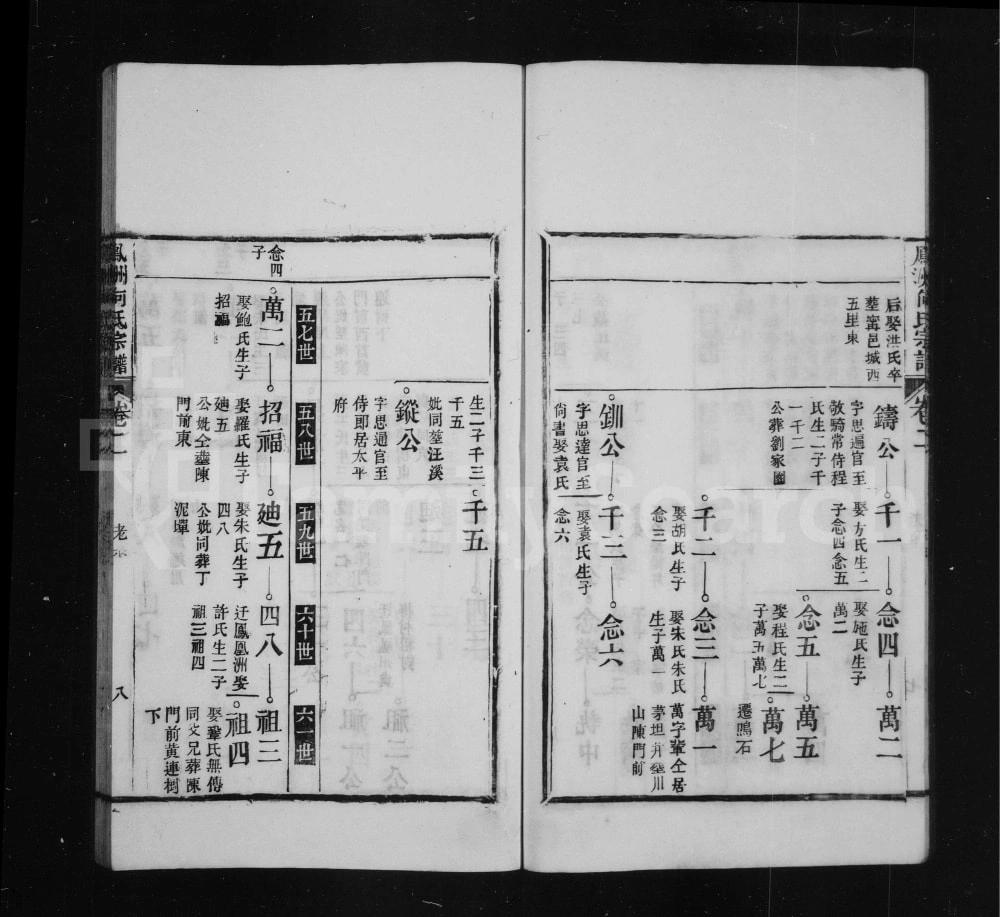 后娶洪氏卒
塟甯邑城西
五里東
鑄公
字思遁官至
散騎常侍程
氏生二子千
一千二
公葬劉家園
千一
娶方氏生二
子念四念五
念四
娶施氏生子
萬二
萬二
念五
娶程氏生二
子萬五萬七
萬五
萬七
遷鳴石
千二
娶胡氏生子
念三
念三
娶朱氏朱氏
生子萬一
萬一
萬字輩仝居
茅坦并塟川
山陳門前
釧公
字思達官至
尙書娶袁氏
千三
娶袁氏生子
念六
念六
鳳洲何氏宗譜
卷二
生二子千三
千五
妣同塟汪溪
千五
鏦公
字思通官至
侍郎居太平
府
五七世
五八世
五九世
六十世
六一世
念四
子
萬二
娶鮑氏生子
招福
招福
娶羅氏生子
廸五
公妣仝塟陳
門前東
廸五
娶朱氏生子
四八
公妣同葬丁
泥墠
四八
迁鳳凰洲娶
許氏生二子
祖三祖四
祖三
祖四
娶鞏氏無傳
同父兄葬陳
門前黃連樹
下
鳳洲何氏宗譜
卷二
八